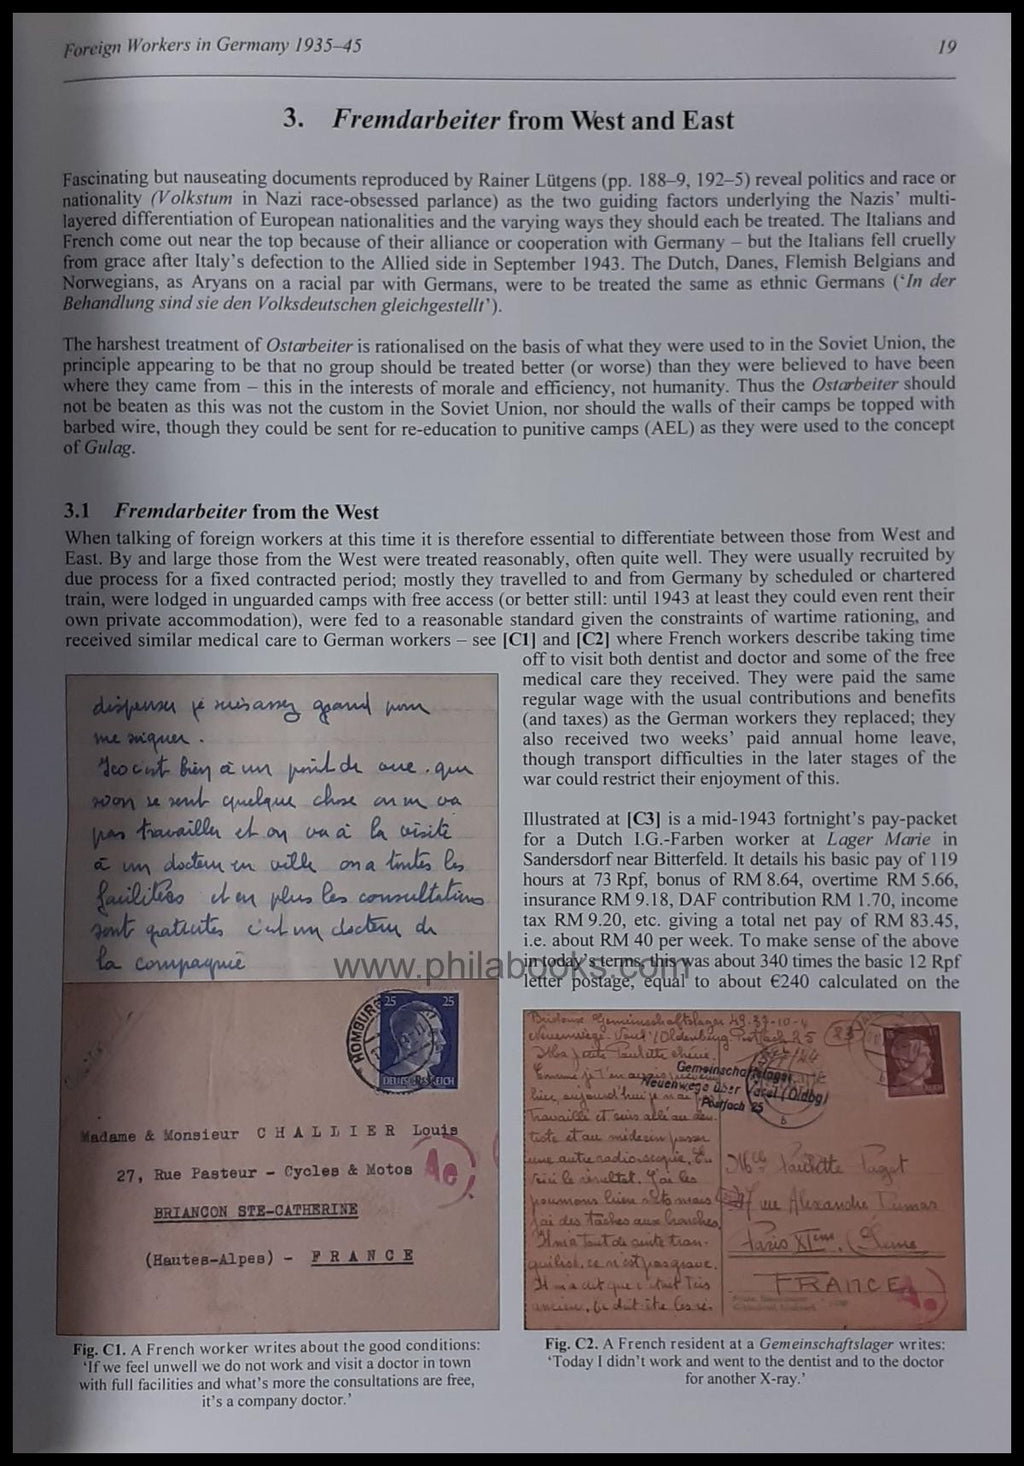 Foreign Workers in Germany 1935–45
19
3. Fremdarbeiter from West and East
Fascinating but nauseating documents reproduced by Rainer Lütgens (pp. 188–9, 192–5) reveal politics and race or
nationality (Volkstum in Nazi race-obsessed parlance) as the two guiding factors underlying the Nazis' multi-
layered differentiation of European nationalities and the varying ways they should each be treated. The Italians and
French come out near the top because of their alliance or cooperation with Germany – but the Italians fell cruelly
from grace after Italy's defection to the Allied side in September 1943. The Dutch, Danes, Flemish Belgians and
Norwegians, as Aryans on a racial par with Germans, were to be treated the same as ethnic Germans ('In der
Behandlung sind sie den Volksdeutschen gleichgestellt').
The harshest treatment of Ostarbeiter is rationalised on the basis of what they were used to in the Soviet Union, the
principle appearing to be that no group should be treated better (or worse) than they were believed to have been
where they came from – this in the interests of morale and efficiency, not humanity. Thus the Ostarbeiter should
not be beaten as this was not the custom in the Soviet Union, nor should the walls of their camps be topped with
barbed wire, though they could be sent for re-education to punitive camps (AEL) as they were used to the concept
of Gulag.
3.1 Fremdarbeiter from the West
When talking of foreign workers at this time it is therefore essential to differentiate between those from West and
East. By and large those from the West were treated reasonably, often quite well. They were usually recruited by
due process for a fixed contracted period; mostly they travelled to and from Germany by scheduled or chartered
train, were lodged in unguarded camps with free access (or better still: until 1943 at least they could even rent their
own private accommodation), were fed to a reasonable standard given the constraints of wartime rationing, and
received similar medical care to German workers – see [C1] and [C2] where French workers describe taking time
off to visit both dentist and doctor and some of the free
medical care they received. They were paid the same
regular wage with the usual contributions and benefits
(and taxes) as the German workers they replaced; they
also received two weeks' paid annual home leave,
though transport difficulties in the later stages of the
war could restrict their enjoyment of this.
Illustrated at [C3] is a mid-1943 fortnight's pay-packet
for a Dutch I.G.-Farben worker at Lager Marie in
Sandersdorf near Bitterfeld. It details his basic pay of 119
hours at 73 Rpf, bonus of RM 8.64, overtime RM 5.66,
insurance RM 9.18, DAF contribution RM 1.70, income
tax RM 9.20, etc. giving a total net pay of RM 83.45,
i.e. about RM 40 per week. To make sense of the above
in today's terms, this was about 340 times the basic 12 Rpf
letter postage, equal to about €240 calculated on the
dispenser je suis assez grand pour
me soigner.
Ici c'est bien à un point de vue. que
soon se sent quelque chose on ne va
pas travailler et on va à la visite
à un docteur en ville on a toutes les
facilitées et en plus les consultations
sont gratuites c'est un docteur de
la compagnie
www.philabooks.com
HOMBURG
25 25
DEUTSCHES REICH
Madame & Monsieur CHALLIER Louis
27, Rue Pasteur - Cycles & Motos
BRIANCON STE-CATHERINE
(Hautes-Alpes) - FRANCE
Ae
Fig. C1. A French worker writes about the good conditions:
'If we feel unwell we do not work and visit a doctor in town
with full facilities and what's more the consultations are free,
it's a company doctor.'
Gemeinschaftslager
Neuenwege über Varel (Oldbg)
Postfach 25
hier, aujourd'hui je n'ai pas
travaillé et suis allé au den-
tiste et au médecin passer
une autre radioscopie. En
voici le résultat. J'ai les
poumons bien nets mais
j'ai des taches aux bronches.
Il m'a tout de suite tran-
quilisé, ce n'est pas grave.
Il m'a dit que c'était très
Mlle Paulette Paget
rue Alexandre Dumas
Paris XIème (Seine
FRANCE
Fig. C2. A French resident at a Gemeinschaftslager writes:
'Today I didn't work and went to the dentist and to the doctor
for another X-ray.'